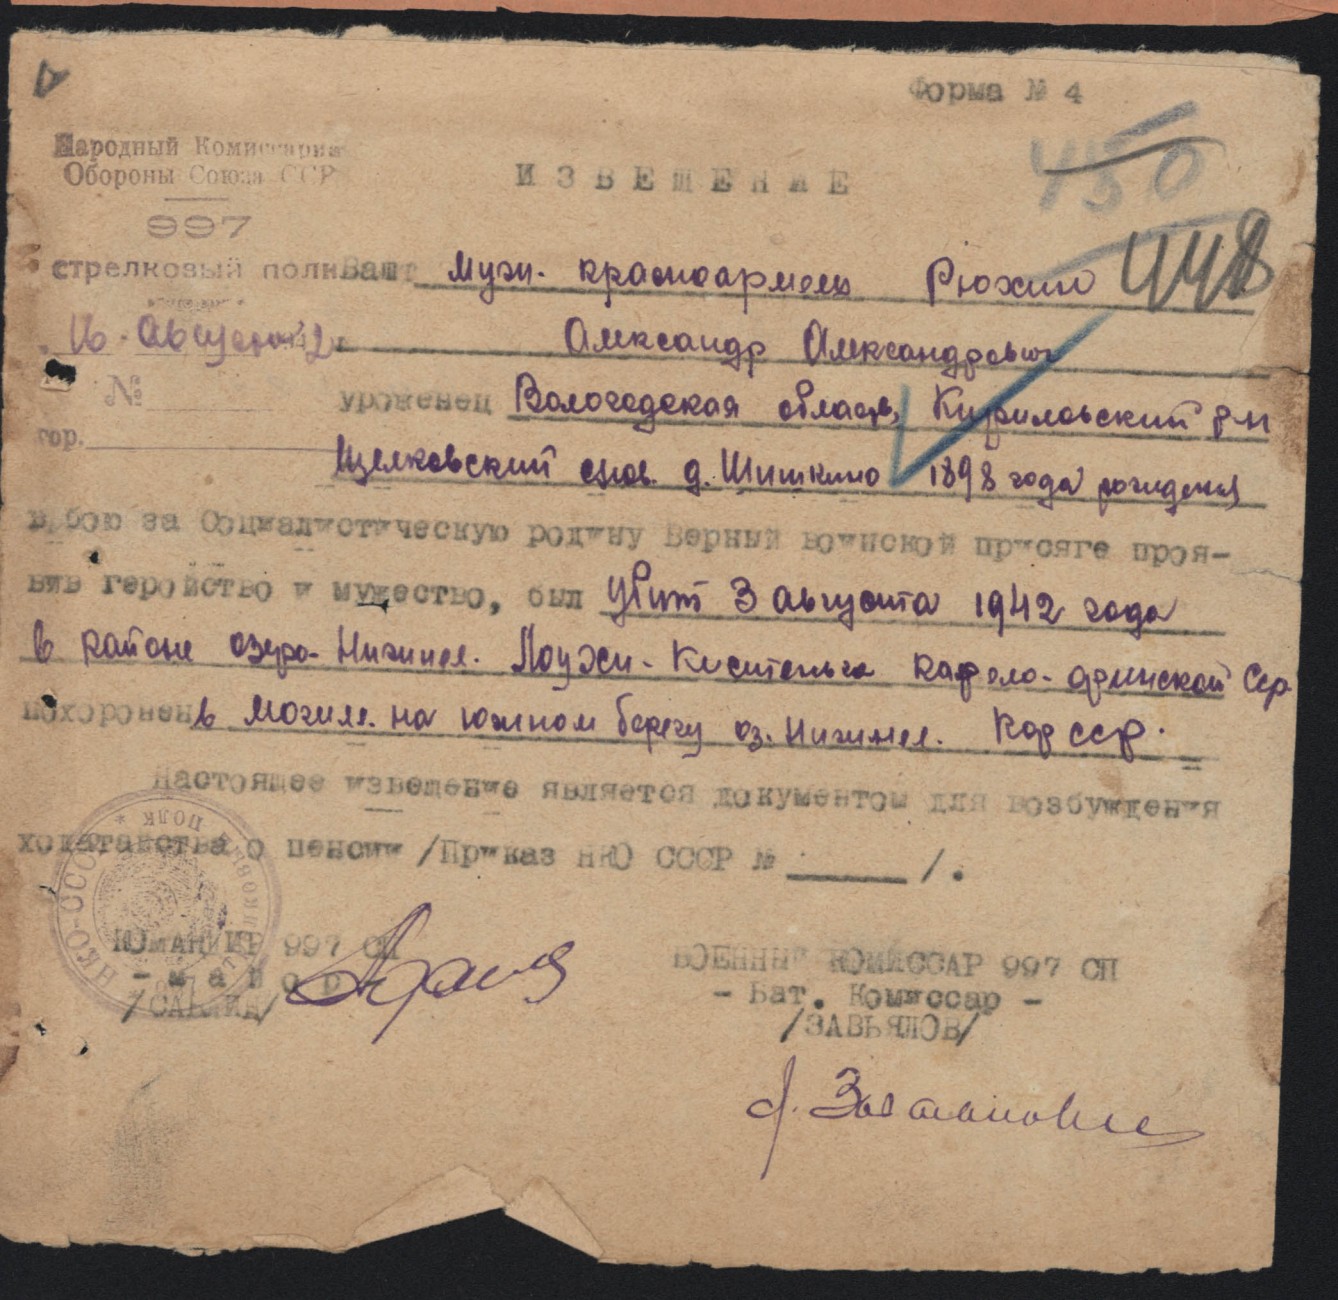 Форма № 4
450
Народный Комиссариат
Обороны Союза ССР
ИЗВЕЩЕНИЕ
997
448
стрелковый полк Ваш муж. красноармеец Рюхин
16 Августа 2
Александр Александрович
№
уроженец Вологодская область, Кириловский р-н
гор.
Щелковский с/сов. д. Шишкино 1898 года рождения
в бою за Социалистическую родину Верный воинской присяге проя-
вив геройство и мужество, был убит 3 августа 1942 года
в районе озеро- Нигинел. Лоухи - Кистеньга Карело-финской Сср
похоронен в могиле на южном берегу оз. Нигинел. Кар ССР.
Настоящее извещение является документом для возбуждения
ходатайства о пенсии /Приказ НКО СССР № /.
НКО-СССР ПОЛК
КОМАНДИР 997 СП
- м а й о р -
ВОЕННЫЙ КОМИССАР 997 СП
- Бат. Комиссар -
/ЗАВЬЯЛОВ/